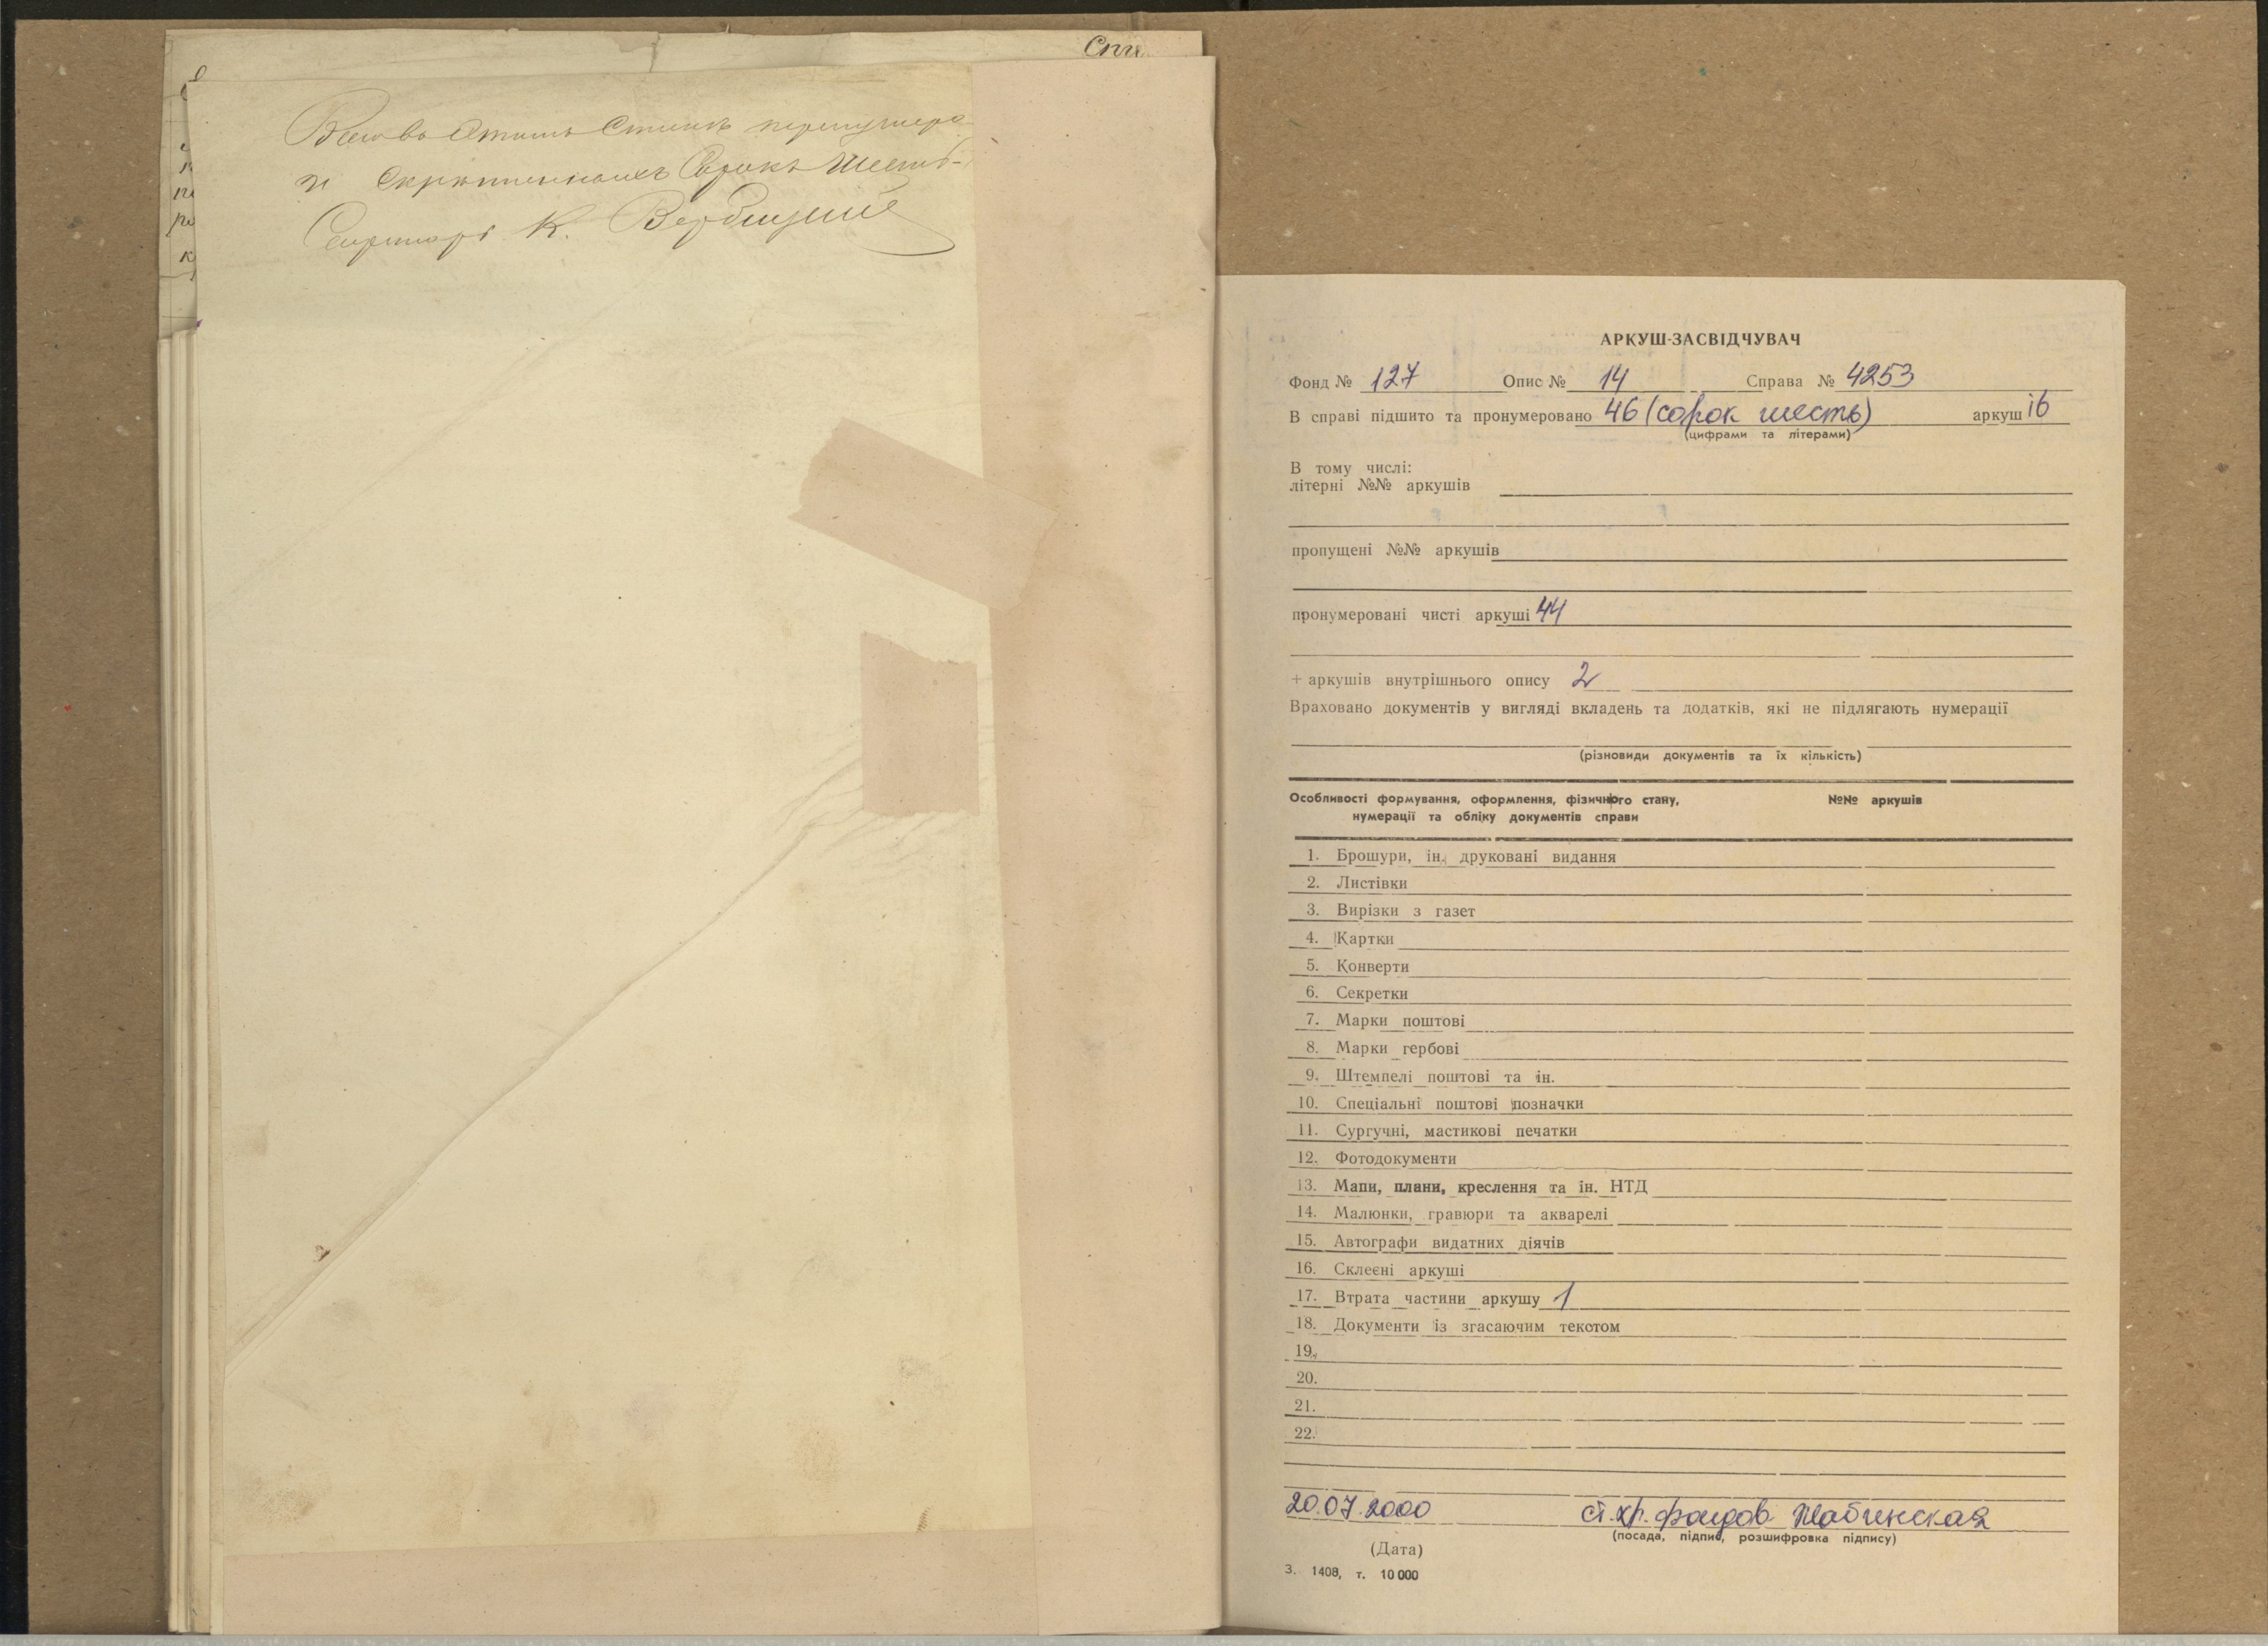 Спи
и скрепленныхъ Сорокъ Шесть
Секретарь К. Вербицкий
АРКУШ-ЗАСВІДЧУВАЧ
Фонд № 127 Опис № 14 Справа № 4253
В справі підшито та пронумеровано 46 (сорок шесть) аркуш ів
(цифрами та літерами)
В тому числі:
літерні №№ аркушів
пропущені №№ аркушів
пронумеровані чисті аркуші 44
+ аркушів внутрішнього опису 2
Враховано документів у вигляді вкладень та додатків, які не підлягають нумерації
(різновиди документів та їх кількість)
Особливості формування, оформлення, фізичного стану, №№ аркушів
нумерації та обліку документів справи
1. Брошури, ін. друковані видання
2. Листівки
3. Вирізки з газет
4. Картки
5. Конверти
6. Секретки
7. Марки поштові
8. Марки гербові
9. Штемпелі поштові та ін.
10. Спеціальні поштові позначки
11. Сургучні, мастикові печатки
12. Фотодокументи
13. Мапи, плани, креслення та ін. НТД
14. Малюнки, гравюри та акварелі
15. Автографи видатних діячів
16. Склеєні аркуші
17. Втрата частини аркушу 1
18. Документи із згасаючим текстом
19.
20.
21.
22.
20.07.2000 ст. хр. фондов
(посада, підпис, розшифровка підпису)
(Дата)
З. 1408, т. 10 000